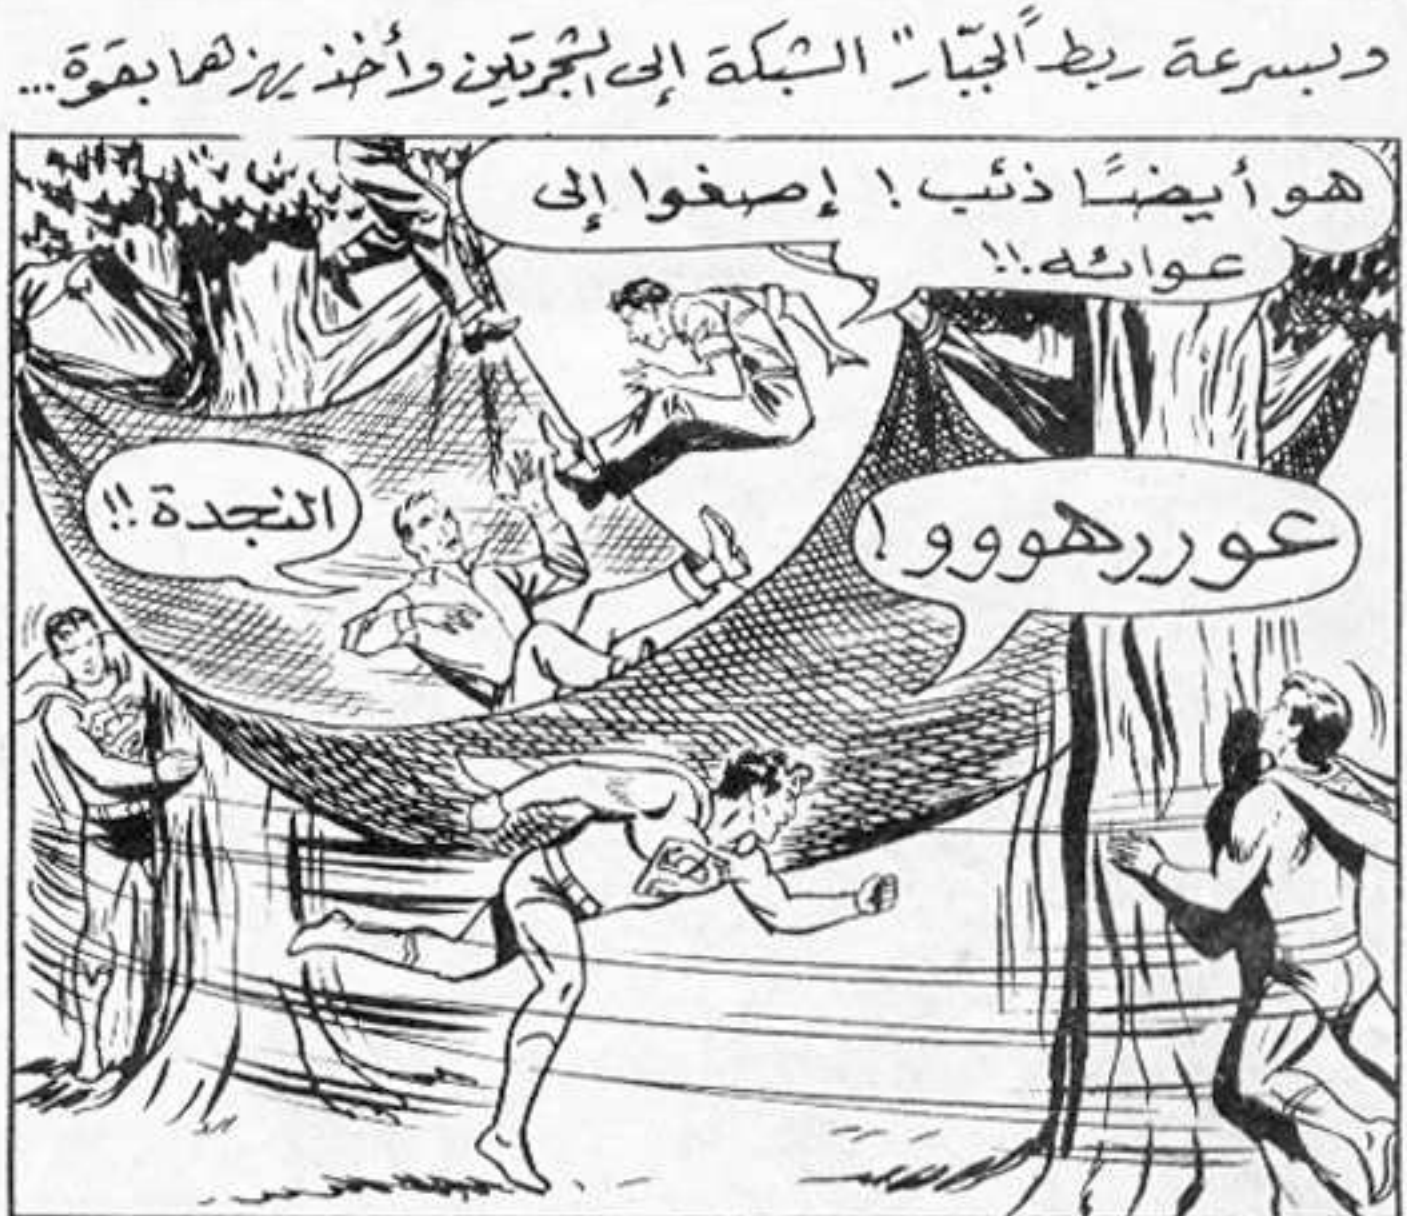 وبسرعة ربط "الجبّار" الشبكة إلى الشجرتين وأخذ يهزهما بقوة...
هو أيضًا ذئب! إصغوا إلى
عوائه..!!
النجدة!!
عوررهووو!
S